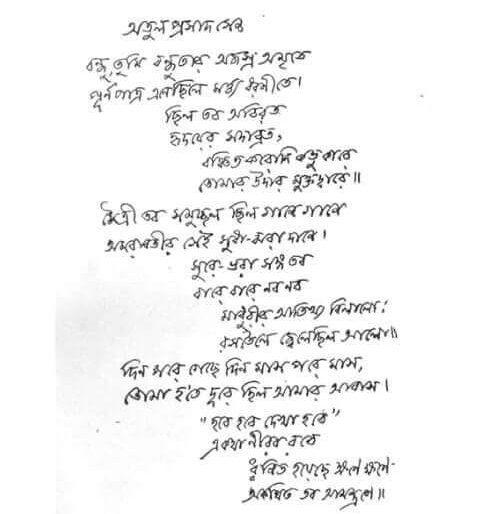 অতুলপ্রসাদ সেন
বন্ধু, তুমি বন্ধুতার অজস্র অমৃতে
পূর্ণপাত্র এনেছিলে মর্ত্য ধরণীতে।
ছিল তব অবিরত
হৃদয়ের সদাব্রত,
বঞ্চিত করোনি কভু কারে
তোমার উদার মুক্ত দ্বারে॥
মৈত্রী তব সমুচ্ছল ছিল গানে গানে
অমরাবতীর সেই সুধা-ঝরা দানে।
সুরে-ভরা সঙ্গ তব
বারে বারে নব নব
মাধুরীর আতিথ্য বিলালো;
রসতৈলে জ্বেলেছিল আলো॥
দিন পরে গেছে দিন মাস পরে মাস,
তোমা হ'তে দূরে ছিল আমার আবাস।
"হবে হবে দেখা হবে"
একথা নীরব রবে
ধ্বনিত হয়েছে ক্ষণে ক্ষণে-
অকথিত তব আমন্ত্রণে॥